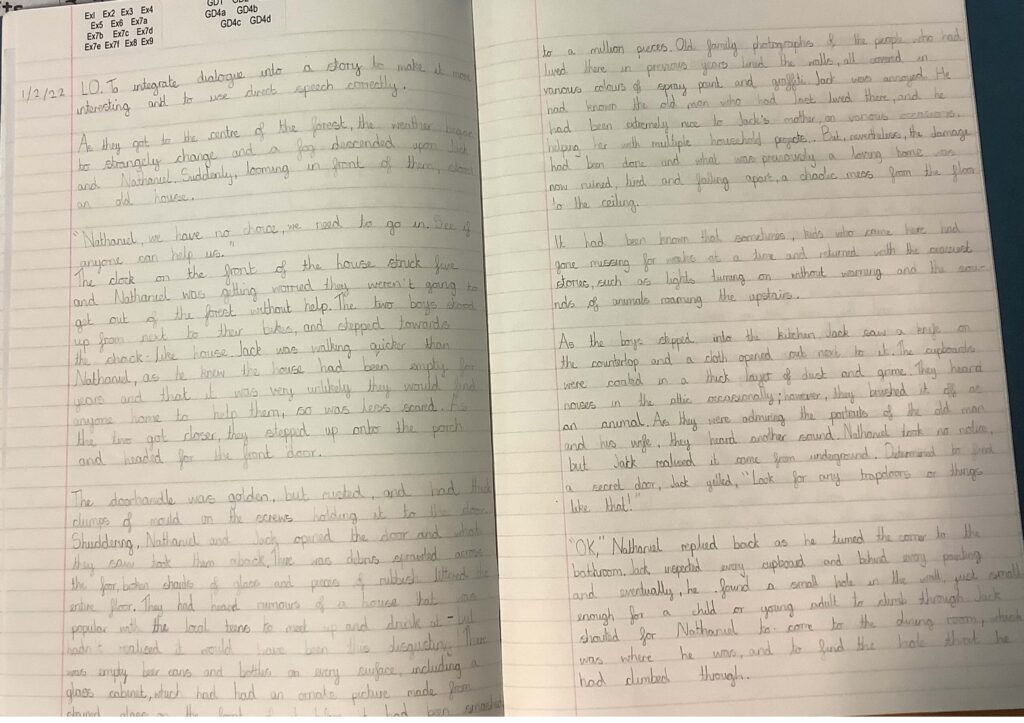 Ex1 Ex2 Ex3 Ex4
Ex5 Ex6 Ex7a
Ex7b Ex7c Ex7d
Ex7e Ex7f Ex8 Ex9
GD4a GD4b
GD4c GD4d
1/2/22 LO. To integrate dialogue into a story to make it more
interesting and to use direct speech correctly.
As they got to the centre of the forest, the weather began
to strangely change and a fog descended upon Jack
and Nathaniel. Suddenly, looming in front of them, stood
an old house.
"Nathaniel, we have no choice, we need to go in. See if
anyone can help us."
The clock on the front of the house struck five
and Nathaniel was getting worried they weren't going to
get out of the forest without help. The two boys stood
up from next to their bikes, and stepped towards
the shack-like house. Jack was walking quicker than
Nathaniel, as he knew the house had been empty for
years and that it was very unlikely they would find
anyone home to help them, so was less scared. As
the two got closer, they stepped up onto the porch
and headed for the front door.
The doorhandle was golden, but rusted, and had thick
clumps of mould on the screws holding it to the door.
Shuddering, Nathaniel and Jack opened the door and what
they saw took them aback. There was debris sprawled across
the floor, broken shards of glass and pieces of rubbish littered the
entire floor. They had heard rumours of a house that was
popular with the local teens to meet up and drink at - but
hadn't realised it would have been this disgusting. There
was empty beer cans and bottles on every surface, including a
glass cabinet, which had had an ornate picture made from
stained glass on the front of it before it had been smashed
to a million pieces. Old family photographs of the people who had
lived there in previous years lined the walls, all covered in
various colours of spray paint and graffiti. Jack was annoyed. He
had known the old man who had last lived there, and he
had been extremely nice to Jack's mother on various occasions,
helping her with multiple household projects. But, nevertheless, the damage
had been done and what was previously a loving home was
now ruined, tired and falling apart, a chaotic mess from the floor
to the ceiling.
It had been known that sometimes, kids who came here had
gone missing for weeks at a time and returned with the craziest
stories, such as lights turning on without warning and the sou-
nds of animals roaming the upstairs.
As the boys stepped into the kitchen, Jack saw a knife on
the countertop and a cloth opened out next to it. The cupboards
were coated in a thick layer of dust and grime. They heard
noises in the attic occasionally; however, they brushed it off as
an animal. As they were admiring the portraits of the old man
and his wife, they heard another sound. Nathaniel took no notice,
but Jack realised it came from underground. Determined to find
a secret door, Jack yelled, "Look for any trapdoors or things
like that!"
"OK," Nathaniel replied back as he turned the corner to the
bathroom. Jack inspected every cupboard and behind every painting
and eventually, he found a small hole in the wall, just small
enough for a child or young adult to climb through. Jack
shouted for Nathaniel to come to the dining room, which
was where he was, and to find the hole that he
had climbed through.